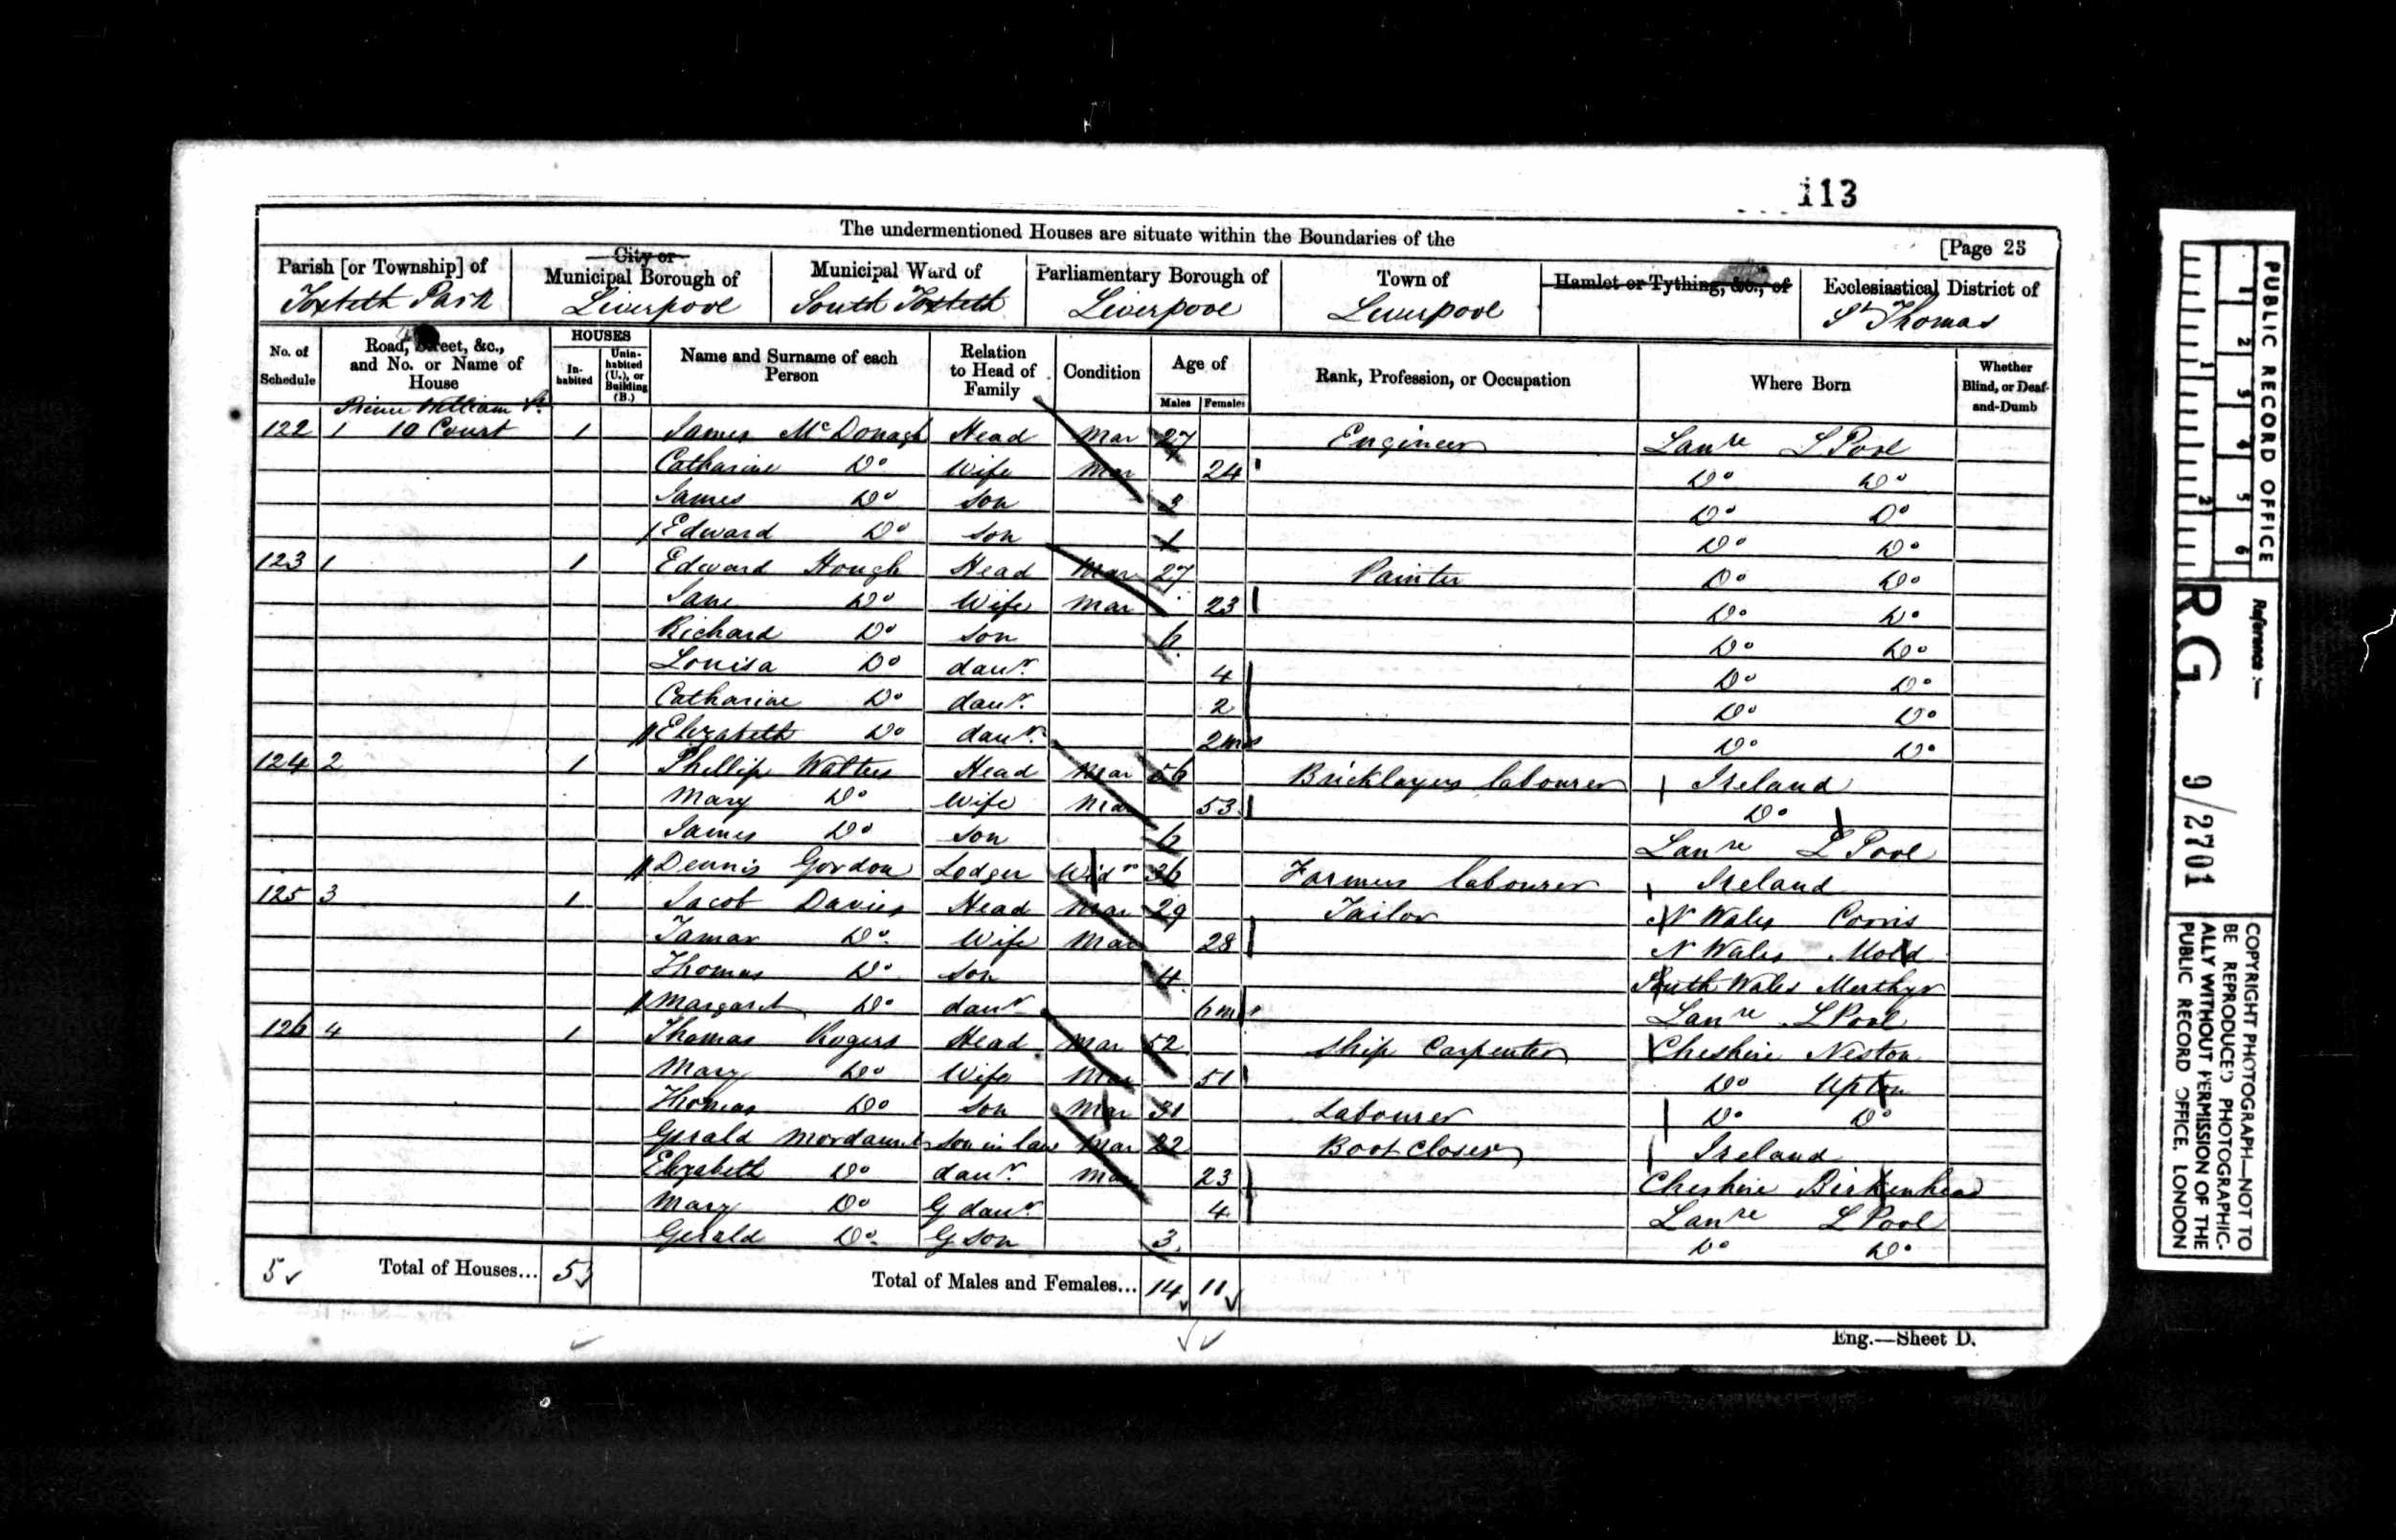 113
The undermentioned Houses are situate within the Boundaries of the
[Page 23
Parish [or Township] of City or Municipal Borough of Municipal Ward of Parliamentary Borough of Town of Hamlet or Tything, &c., of Ecclesiastical District of
Toxteth Park Liverpool South Toxteth Liverpool Liverpool St Thomas
No. of Schedule Road, Street, &c., and No. or Name of House HOUSES Inhabited Uninhabited (U.), or Building (B.) Name and Surname of each Person Relation to Head of Family Condition Age of Males Females Rank, Profession, or Occupation Where Born Whether Blind, or Deaf-and-Dumb
Prince William St.
122 1 10 Court 1 James McDonagh Head Mar 27 Engineer Lanre L Pool
Catharine Do Wife Mar 24 Do Do
James Do Son 3 Do Do
Edward Do Son 1 Do Do
123 1 1 Edward Hough Head Mar 27 Painter Do Do
Jane Do Wife Mar 23 Do Do
Richard Do Son 6 Do Do
Louisa Do daur. 4 Do Do
Catharine Do daur. 2 Do Do
Elizabeth Do daur. 2ms Do Do
124 2 1 Phillip Walters Head Mar 56 Bricklayers labourer Ireland
Mary Do Wife Mar 53 Do
James Do Son 6 Lanre L Pool
Dennis Gordon Lodger Widr 36 Farmers labourer Ireland
125 3 1 Jacob Davies Head Mar 29 Tailor N Wales Corris
Tamar Do Wife Mar 28 N Wales Mold
Thomas Do Son 4 South Wales Merthyr
Margaret Do daur 6m Lanre L Pool
126 4 1 Thomas Rogers Head Mar 52 Ship Carpenter Cheshire Neston
Mary Do Wife Mar 51 Do Upton
Thomas Do Son Mar 31 Labourer Do Do
Gerald Mordaunt Son in law Mar 22 Boot Closer Ireland
Elizabeth Do daur. Mar 23 Cheshire Birkenhead
Mary Do G daur. 4 Lanre L Pool
Gerald Do G Son 3 Do Do
5 Total of Houses... 5 Total of Males and Females... 14 11
Eng.—Sheet D.
PUBLIC RECORD OFFICE
1 2 3 4 5 6
1 2
Reference :—
R.G. 9/2701
COPYRIGHT PHOTOGRAPH—NOT TO
BE REPRODUCED PHOTOGRAPHIC-
ALLY WITHOUT PERMISSION OF THE
PUBLIC RECORD OFFICE, LONDON